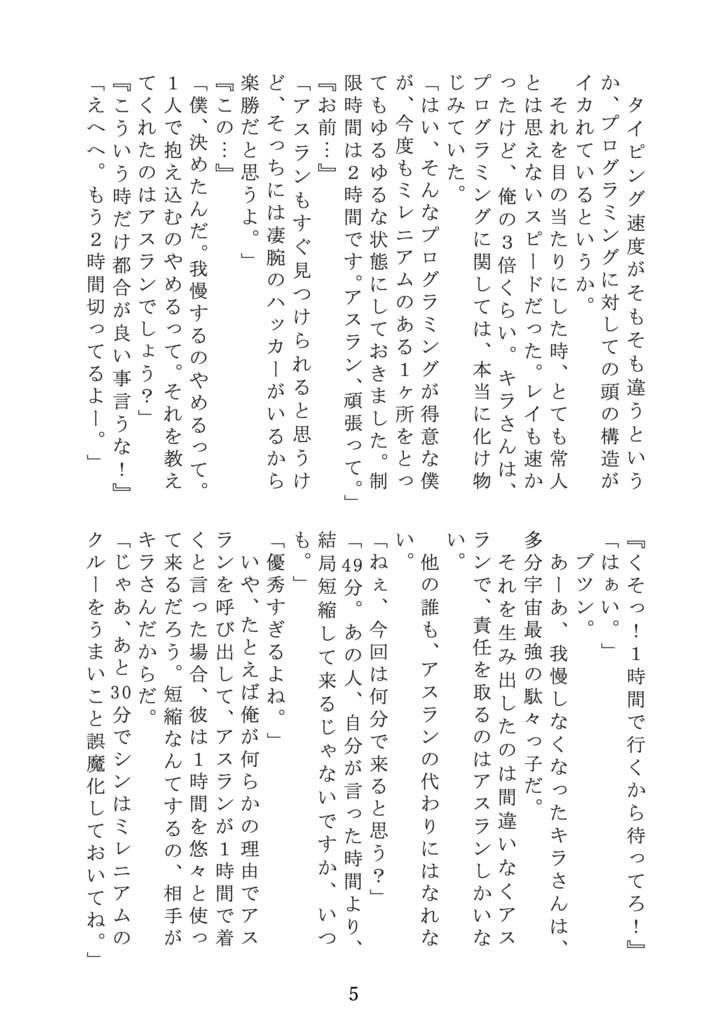 タイピング速度がそもそも違うという
か、プログラミングに対しての頭の構造が
イカれているというか。
　それを目の当たりにした時、とても常人
とは思えないスピードだった。レイも速か
ったけど、俺の３倍くらい。キラさんは、
プログラミングに関しては、本当に化け物
じみていた。
「はい、そんなプログラミングが得意な僕
が、今度もミレニアムのある１ヶ所をとっ
てもゆるゆるな状態にしておきました。制
限時間は２時間です。アスラン、頑張って。」
『お前…』
「アスランもすぐ見つけられると思うけ
ど、そっちには凄腕のハッカーがいるから
楽勝だと思うよ。」
『この…』
「僕、決めたんだ。我慢するのやめるって。
１人で抱え込むのやめるって。それを教え
てくれたのはアスランでしょう？」
『こういう時だけ都合が良い事言うな！』
「えへへ。もう２時間切ってるよー。」
『くそっ！１時間で行くから待ってろ！』
「はぁい。」
　ブツン。
　あーあ、我慢しなくなったキラさんは、
多分宇宙最強の駄々っ子だ。
　それを生み出したのは間違いなくアス
ランで、責任を取るのはアスランしかいな
い。
　他の誰も、アスランの代わりにはなれな
い。
「ねぇ、今回は何分で来ると思う？」
「49分。あの人、自分が言った時間より、
結局短縮して来るじゃないですか、いつ
も。」
「優秀すぎるよね。」
　いや、たとえば俺が何らかの理由でアス
ランを呼び出して、アスランが１時間で着
くと言った場合、彼は１時間を悠々と使っ
て来るだろう。短縮なんてするの、相手が
キラさんだからだ。
「じゃあ、あと30分でシンはミレニアムの
クルーをうまいこと誤魔化しておいてね。」
5